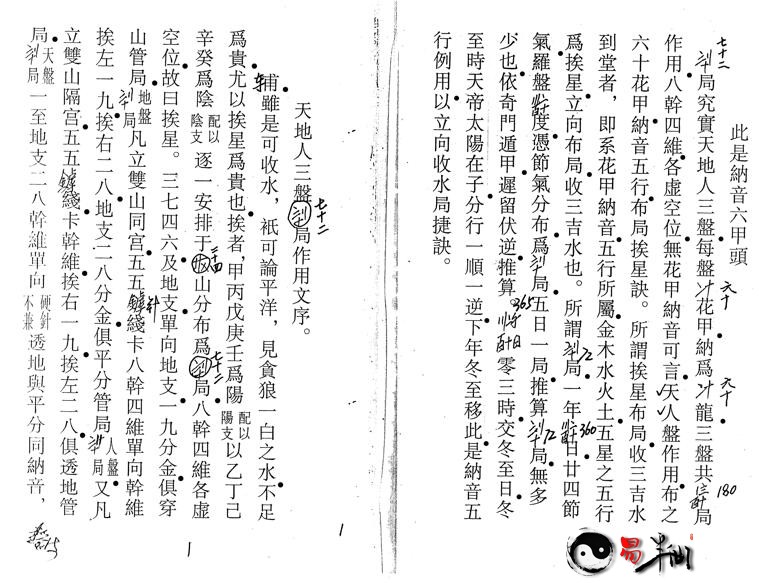 此是納音六甲頭
七十二
局究實天地人三盤每盤花甲納爲龍三盤共局
六十
六十
180
作用八幹四維各虛空位無花甲納音可言天人盤作用布之
六十花甲納音五行布局挨星訣。所謂挨星布局收三吉水
到堂者，即系花甲納音五行所屬金木水火土五星之五行
爲挨星立向布局收三吉水也。所謂局一年日廿四節
72
360
氣羅盤度憑節氣分布爲局五日一局推算局無多
72
少也依奇門遁甲遲留伏逆推算。零三時交冬至日冬
365
至時天帝太陽在子分行一順一逆下年冬至移此是納音五
行例用以立向收水局捷訣。
天地人三盤局作用文序。
七十二
輔雖是可收水，祇可論平洋，見貪狼一白之水不足
爲貴尤以挨星爲貴也挨者，甲丙戊庚壬爲陽配以陽支以乙丁己
辛癸爲陰配以陰支逐一安排于山分布爲局八幹四維各虛
二十四
七十二
空位故曰挨星。三七四六及地支單向地支一九分金俱穿
山管局地盤局凡立雙山同宫五五綫卡八幹四維單向幹維
針
挨左一九挨右二八地支二八分金俱平分管局人盤局又凡
立雙山隔宫五五綫卡幹維挨右一九挨左二八俱透地管
局天盤局一至地支二八幹維單向硬針不兼透地與平分同納音，
1
1
易